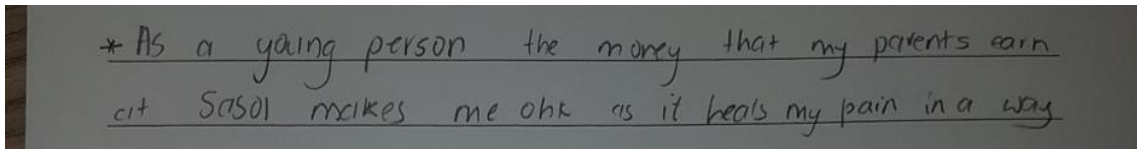 * As a young person the money that my parents earn
at Sasol makes me ohk as it heals my pain in a way